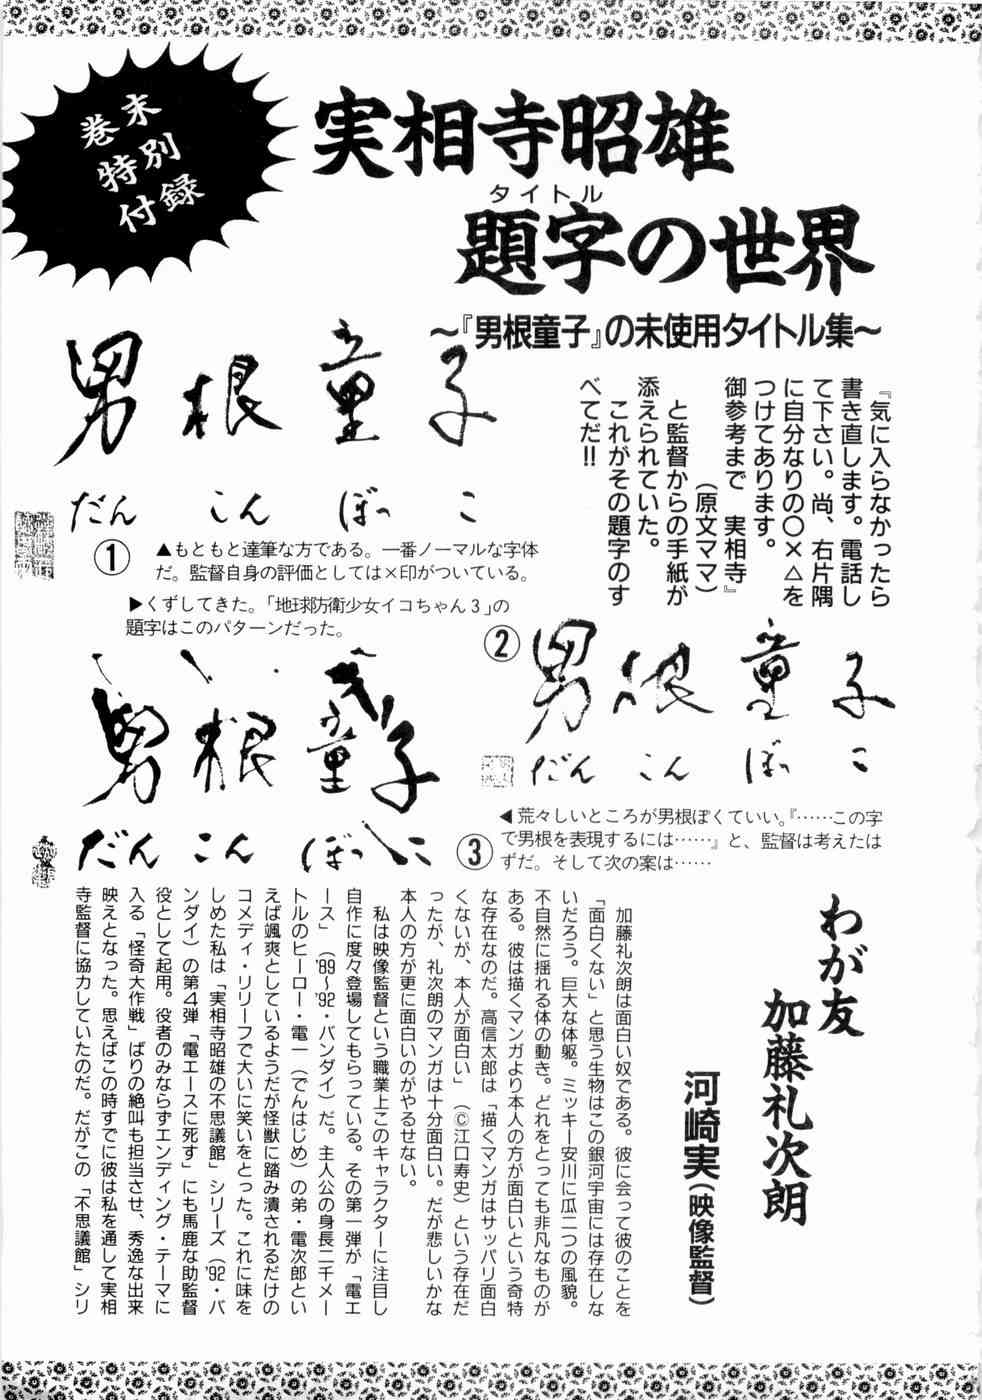 巻末
特別
付録
実相寺昭雄
タイトル
題字の世界
～『男根童子』の未使用タイトル集～
『気に入らなかったら
書き直します。電話し
て下さい。尚、右片隅
に自分なりの○×△を
つけてあります。
御参考まで　実相寺』
（原文ママ）
と監督からの手紙が
添えられていた。
これがその題字のす
べてだ!!
男根童子
だんこんぼっこ
①
▲もともと達筆な方である。一番ノーマルな字体
だ。監督自身の評価としては×印がついている。
▶くずしてきた。「地球防衛少女イコちゃん3」の
題字はこのパターンだった。
②
男根童子
だんこんぼっこ
男根童子
だんこんぼっこ
③
◀荒々しいところが男根ぽくていい。『……この字
で男根を表現するには……』と、監督は考えたは
ずだ。そして次の案は……
わが友
加藤礼次朗
河崎実（映像監督）
加藤礼次朗は面白い奴である。彼に会って彼のことを
「面白くない」と思う生物はこの銀河宇宙には存在しな
いだろう。巨大な体躯。ミッキー安川に瓜二つの風貌。
不自然に揺れる体の動き。どれをとっても非凡なものが
ある。彼は描くマンガより本人の方が面白いという奇特
な存在なのだ。高信太郎は「描くマンガはサッパリ面白
くないが、本人が面白い」（©江口寿史）という存在だ
ったが、礼次朗のマンガは十分面白い。だが悲しいかな
本人の方が更に面白いのがやるせない。
私は映像監督という職業上このキャラクターに注目し
自作に度々登場してもらっている。その第一弾が「電エ
ース」（'89〜'92・バンダイ）だ。主人公の身長二千メー
トルのヒーロー・電一（でんはじめ）の弟・電次郎とい
えば颯爽としているようだが怪獣に踏み潰されるだけの
コメディ・リリーフで大いに笑いをとった。これに味を
しめた私は「実相寺昭雄の不思議館」シリーズ（'92・バ
ンダイ）の第4弾「電エースに死す」にも馬鹿な助監督
役として起用。役者のみならずエンディング・テーマに
入る「怪奇大作戦」ばりの絶叫も担当させ、秀逸な出来
映えとなった。思えばこの時すでに彼は私を通して実相
寺監督に協力していたのだ。だがこの「不思議館」シリ